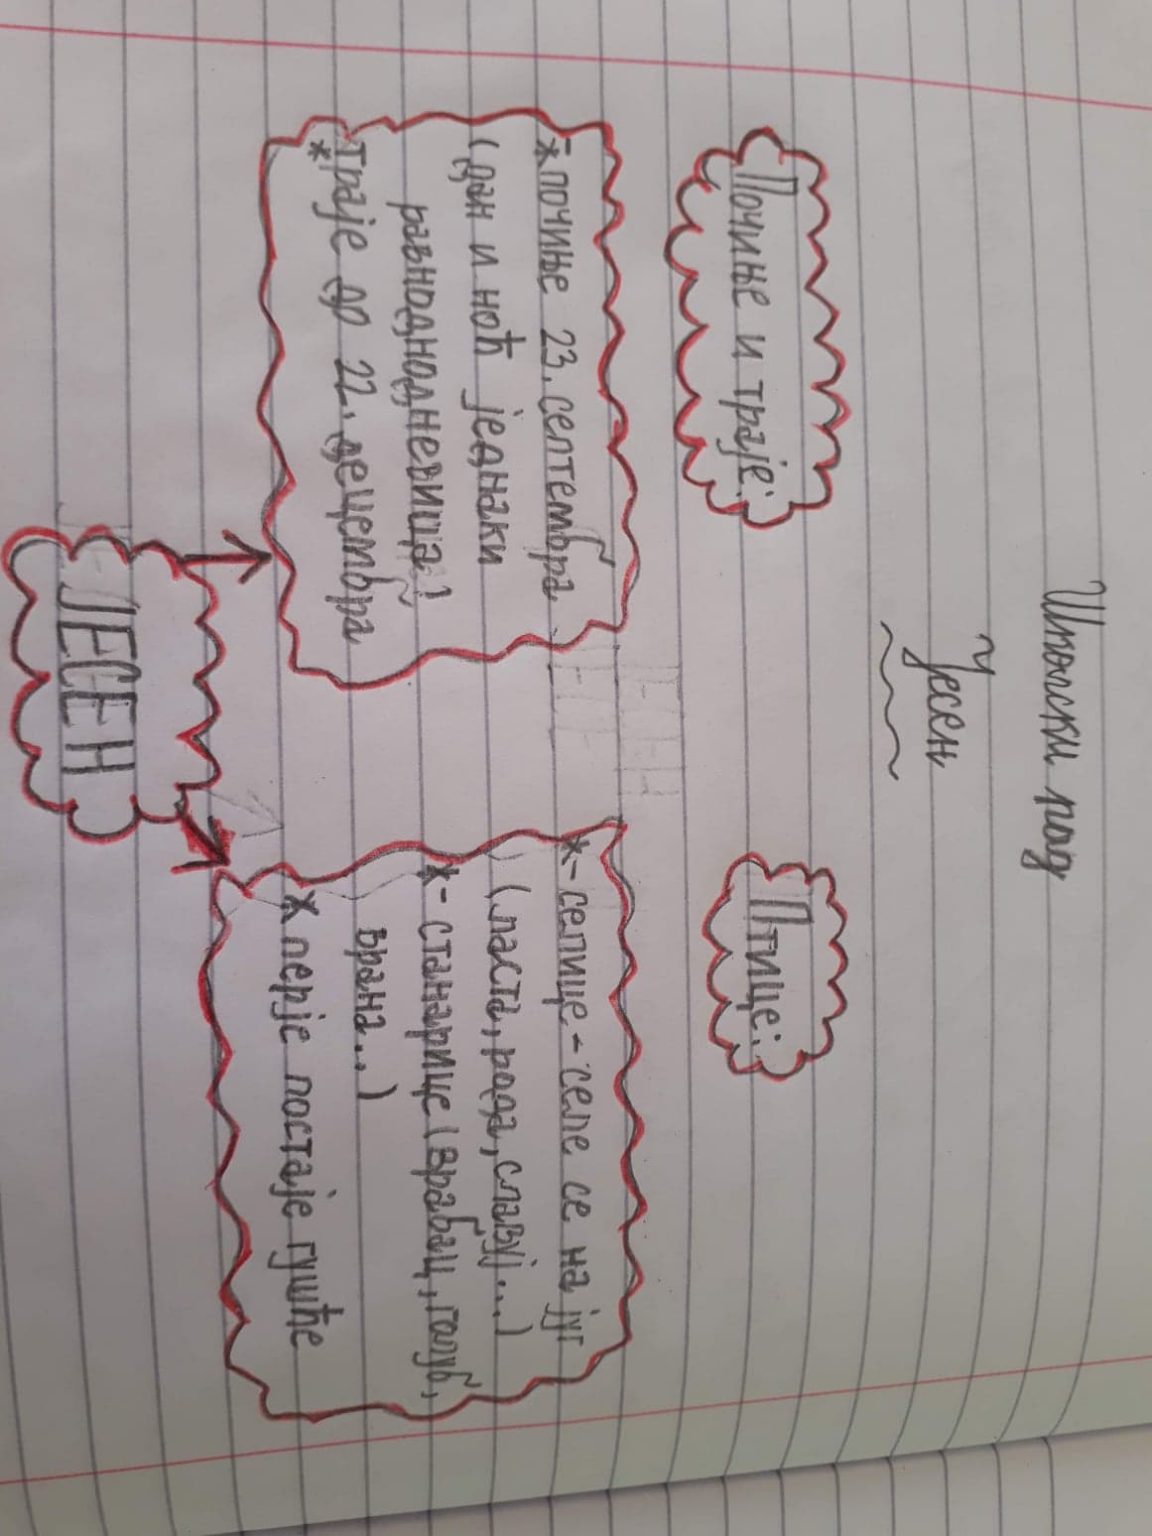 Школски рад
Јесен
Почиње и траје:
* почиње 23. септембра
(дан и ноћ једнаки
равноднодневица)
* траје до 22. децембра
Птице:
*- селице - селе се на југ
(ласта, рода, славуј...)
*- станарице (врабац, голуб,
врана..)
* перје постаје гушће
ЈЕСЕН